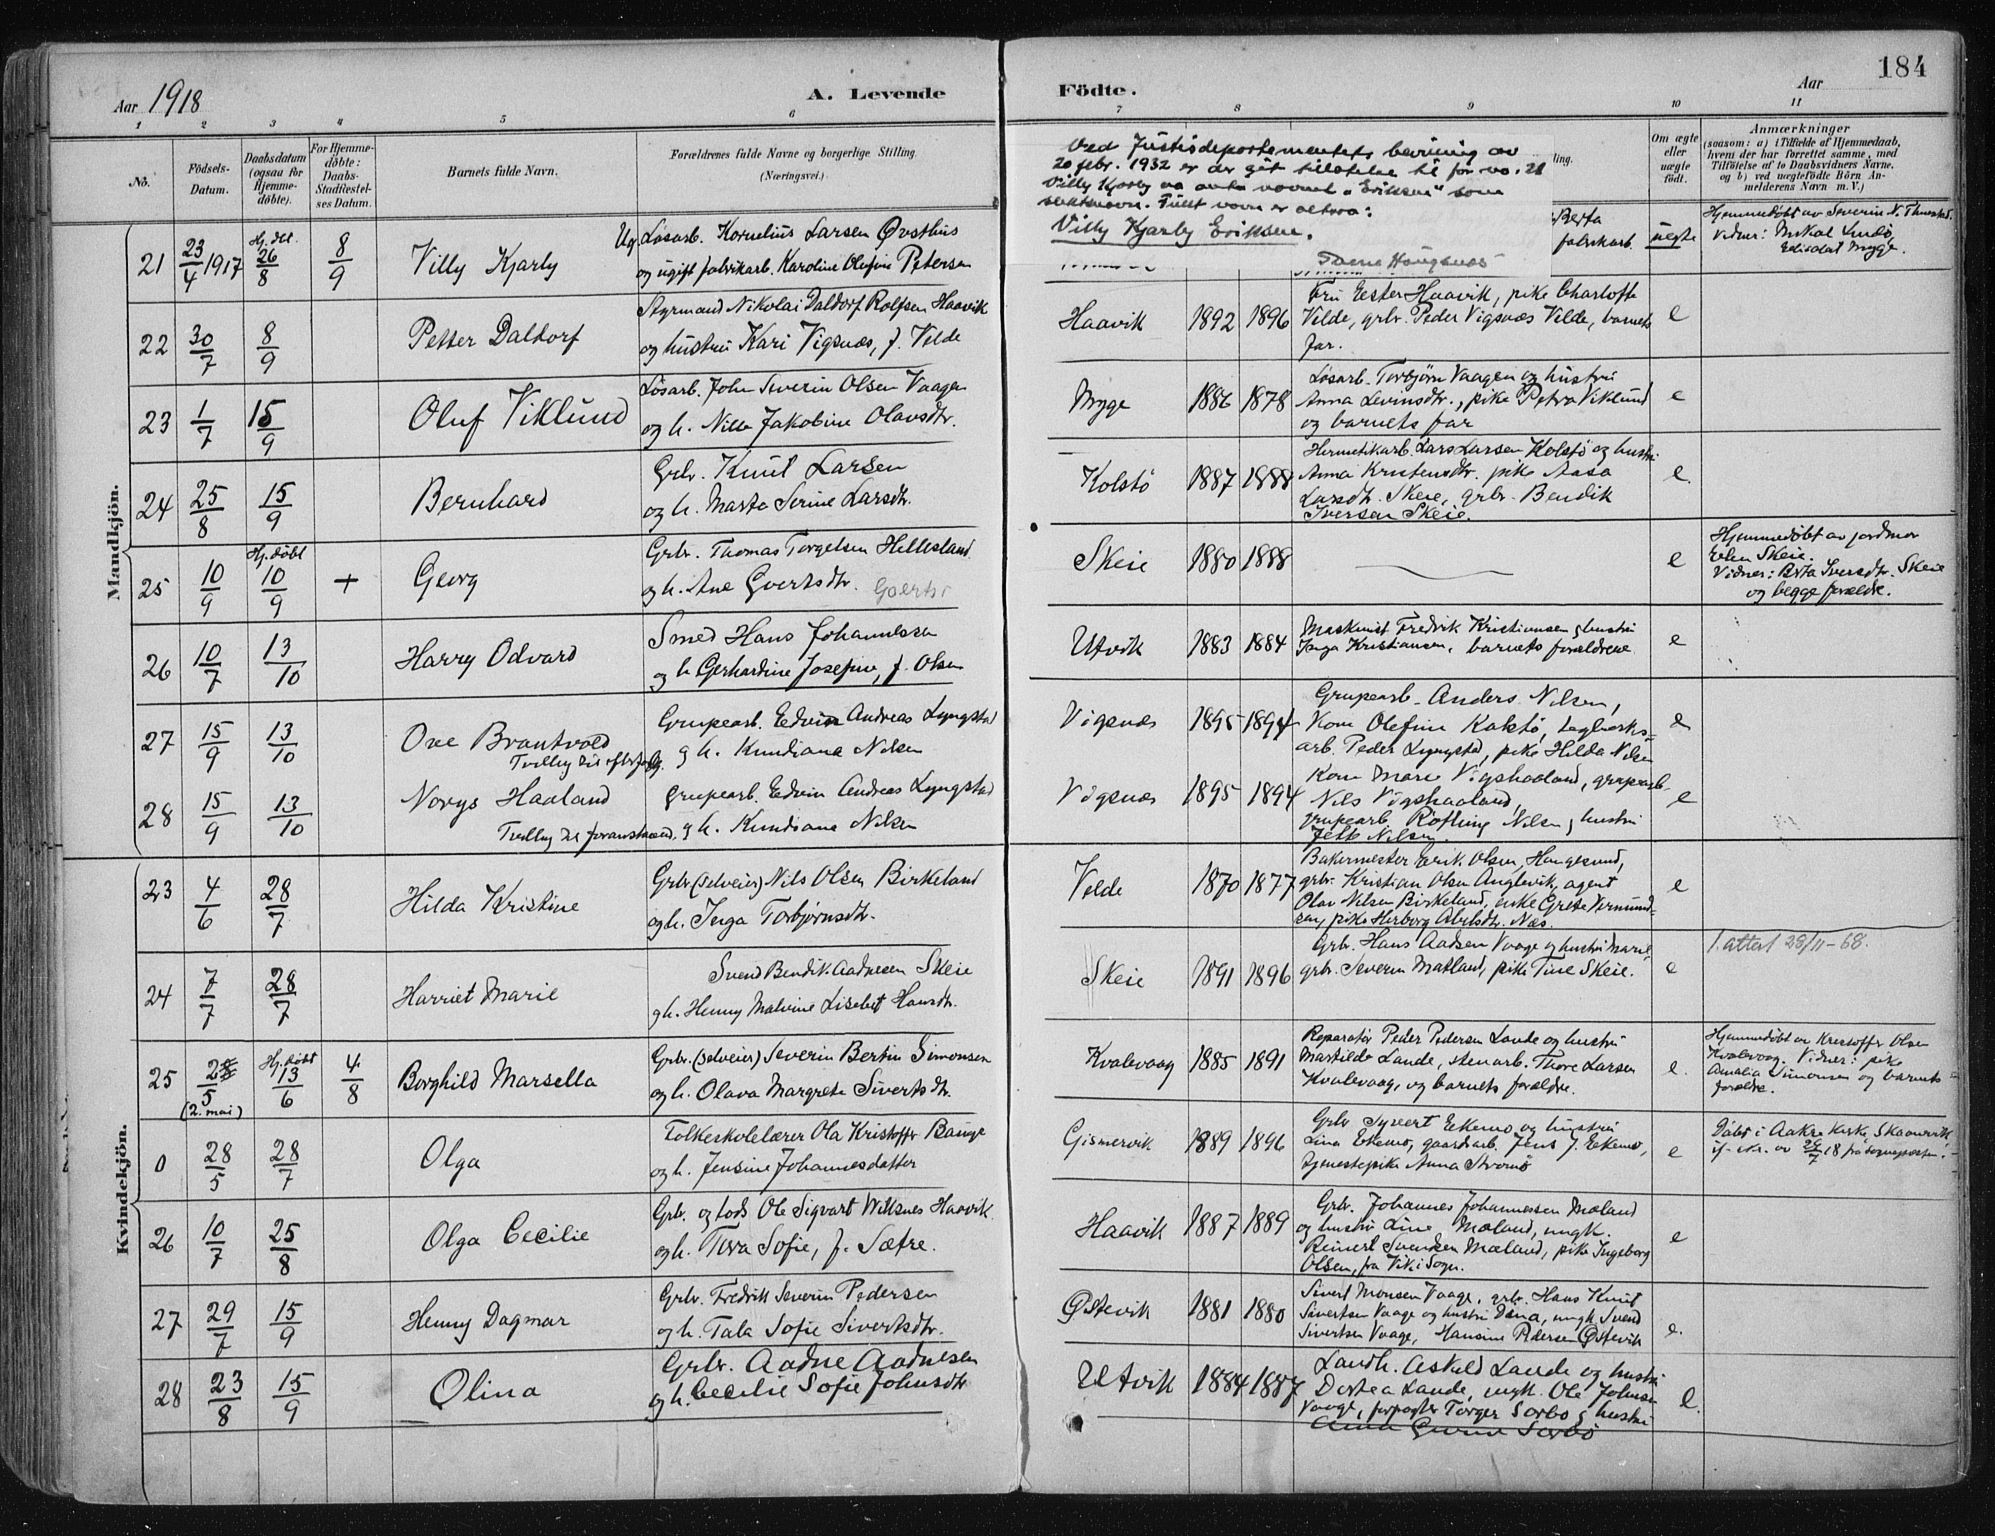 Aar 1918
A. Levende
Födte.
Aar
184
1 2 3 4 5 6 7 8 9 10 11
No.
Födsels-
Datum.
Daabsdatum
(ogsaa for
Hjemme-
döbte).
For Hjemme-
döbte:
Daabs-
Stadfæstel-
ses Datum.
Barnets fulde Navn.
Forældrenes fulde Navne og borgerlige Stilling.
(Næringsvei.)
Om ægte
eller
uægte
födt.
Anmærkninger
(saasom: a) i Tilfælde af Hjemmedaab,
hvem der har forrettet samme, med
Tilföielse af to Daabsvidners Navne,
og b) ved uægtefödte Börn An-
melderens Navn m. V.)
Ved Justisdepartementets bevilling av
20 febr. 1932 er der gitt tillatelse til for no. 21
Villy Kjarby aa anta navnet "Eriksen" som
slektsnavn. Fullt navn er altsaa:
Villy Kjarby Eriksen.
Mandkjön.
21 23/4 1917 Hj. dbt. 26/8 8/9 Villy Kjarly
Ug. Løsarb. Kornelius Larsen Øvsthus
og ugift fabrikarb. Karoline Olefine Petersen
Berta
fabrikarb.
uegte
Hjemmedøbt av Severin N. Thuestad.
Vidner: Mikal Lindø
Elisabet Mygge.
22 30/7 8/9 Petter Daltorf
Styrmand Nikolai Daldorf Rolfsen Haavik
og hustru Kari Vigsnæs, f. Velde
Haavik 1892 1896
Fru Ester Haavik, pike Charlotte
Vilde, grbr. Peder Vigsnæs Vilde, barnets
far.
e
23 1/7 15/9 Oluf Viklund
Løsarb. John Severin Olsen Vaagen
og h. Nille Jakobine Olavsdtr.
Mygge 1886 1878
Løsarb. Torbjørn Vaagen og hustru
Anna Levinsdtr., pike Petra Viklund
og barnets far
e
24 25/8 15/9 Bernhard
Grbr. Knut Larsen
og h. Marta Serine Larsdtr.
Kolstö 1887 1888
Hermetikarb. Lars Larsen Kolstö og hustru
Anna Kristensdtr. pike Aasa
Larsdtr. Skeie, grbr. Bendik
Iversen Skeie.
e.
25 10/9 Hj. døbt 10/9 + Georg
Grbr. Thomas Torgelsen Hillesland
og h. Ane Govertsdtr.
Skeie 1880 1888
e
Hjemmedøbt av jordmor
Elen Skeie.
Vidner: Berta Iversdtr. Skeie
og begge forældre.
26 10/7 13/10 Harry Odvard
Smed Hans Johannessen
og h Gerhardine Josefine, f. Olsen
Utvik 1883 1884
Maskinist Fredrik Kristiansen g hustru
Inga Kristiansen, barnets forældrene
e
27 15/9 13/10 Ove Brantvold
Tvilling til efterfølg.
Grupearb. Edvin Andreas Lyngstad
g h. Kundiana Nilsen
Vigsnæs 1895 1894
Grupearb. Anders Nilsen,
Kone Olefine Kolstö, Lagverks-
arb. Peder Lyngstad, pike Hilda Nilsen
e
28 15/9 13/10 Norys Haaland
Tvilling til foranstaaend.
Grupearb. Edvin Andreas Lyngstad
g h. Kundiana Nilsen
Vigsnæs 1895 1894
Kone Marie Vigshaaland, grupearb.
Nils Vigshaaland,
grupearb. Rofling Nilsen g hustru
Nilsen
e
Kvindekjön.
23 4/6 28/7 Hilda Kristine
Grbr. (selveier) Nils Olsen Birkeland
og h. Inga Torbjørnsdtr.
Velde 1870 1877
Bakermester Erik Olsen, Haugesund,
grbr. Kristian Olsen Anglevik, agent
Olav Nilsen Birkeland, enke Grete Vermund-
sen, pike Herborg Abelsdtr. Næs.
e
24 7/7 28/7 Harriet Marie
Svend Bendik Aadnesen Skeie
g h. Henny Malvine Lisebet Hansdtr.
Skeie 1891 1896
Grbr. Hans Aadsen Vaage og hustru Marie,
grbr. Severin Matland, pike Tine Skeie.
e
1. attest 28/11-68.
25 2/5 (2. mai) Hj. døbt 13/6 4/8 Borghild Marsella
Grbr. (selveier) Severin Bertin Simonsen
og h. Olava Margrete Sivertsdtr.
Kvalevaag 1885 1891
Reparatør Peder Pedersen Lande og hustru
Martilde Lande, stenarb. Thore Larsen
Kvalevaag, og barnets forældre.
e.
Hjemmedøbt av Kristoffer Olsen
Kvalevaag. Vidner: pike
Amalia Simonsen og barnets
forældre.
0 28/5 28/7 Olga
Folkeskolelærer Ola Kristoffer Bauge
og h. Jensine Johannesdatter
Gismervik 1889 1896
Grbr Syvert Eikemo og hustru
Lina Eikemo, gaardsarb. Jens J. Eikemo,
tjenestepike Anna
e
Døbt i Aakre kirke, Skaanevik
26 10/7 25/8 Olga Cecilie
Grbr. og lods Ole Sigvart Wiksnes Haavik
og h. Tora Sofie, f. Sætre.
Haavik 1887 1889
Grbr. Johannes Johannessen Mæland
og hustru Line Mæland, ungk.
Reinert Svendsen Mæland, pike Ingeborg
Olsen, fra Vik i Sogn.
e
27 29/7 15/9 Henny Dagmar
Grbr. Fredrik Severin Pedersen
og h. Tala Sofie Sivertsdtr.
Østevik 1881 1880
Sivert Monsen Vaage, grbr. Hans Knut
Sivertsen Vaage og hustru Dina, ungk Svend
Sivertsen Vaage, Hansine Pedersen Østevik
e.
28 23/8 15/9 Olina
Grbr. Aadne Aadnesen
og h. Cecilie Sofie Johnsdtr
Utvik 1884 1887
Landh. Askild Lande og hustru
Dortea Lande, ungk. Ole Johnsen
Vaage, forpagter Torger Sørbø g hustru
Anna Sørbø
e.